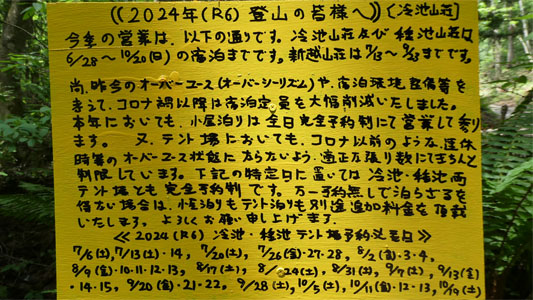 《2024年(R6) 登山の皆様へ》〈冷池山荘〉
今季の営業は、以下の通りです。冷池山荘及び種池山荘は
6/28〜10/20(日)の宿泊までです。新越山荘は7/13〜9/23までです。
尚、昨今のオーバーユース(オーバーツーリズム)や、宿泊環境整備等を
考えて、コロナ禍以降は宿泊定員を大幅削減いたしました。
本年においても、小屋泊りは全日完全予約制にて営業して参り
ます。 又、テント場においても、コロナ以前のような、連休
時等のオーバーユース状態にならないよう、適正な張り数にてきちんと
制限しています。下記の特定日に置いては冷池・種池両
テント場とも完全予約制です。万一予約無しで泊らざるを
得ない場合は、小屋泊りもテント泊りも別途追加料金を頂戴
いたします。よろしくお願い申し上げます。
≪2024(R6) 冷池・種池テント場予約必要日≫
7/6(土),7/13(土)・14, 7/20(土), 7/26(金)・27・28, 8/2(金)・3・4,
8/9(金)・10・11・12・13, 8/17(土), 8/24(土), 8/31(土), 9/7(土), 9/13(金)
・14・15, 9/20(金)・21・22, 9/28(土),10/5(土), 10/11(金)・12・13, 10/19(土)